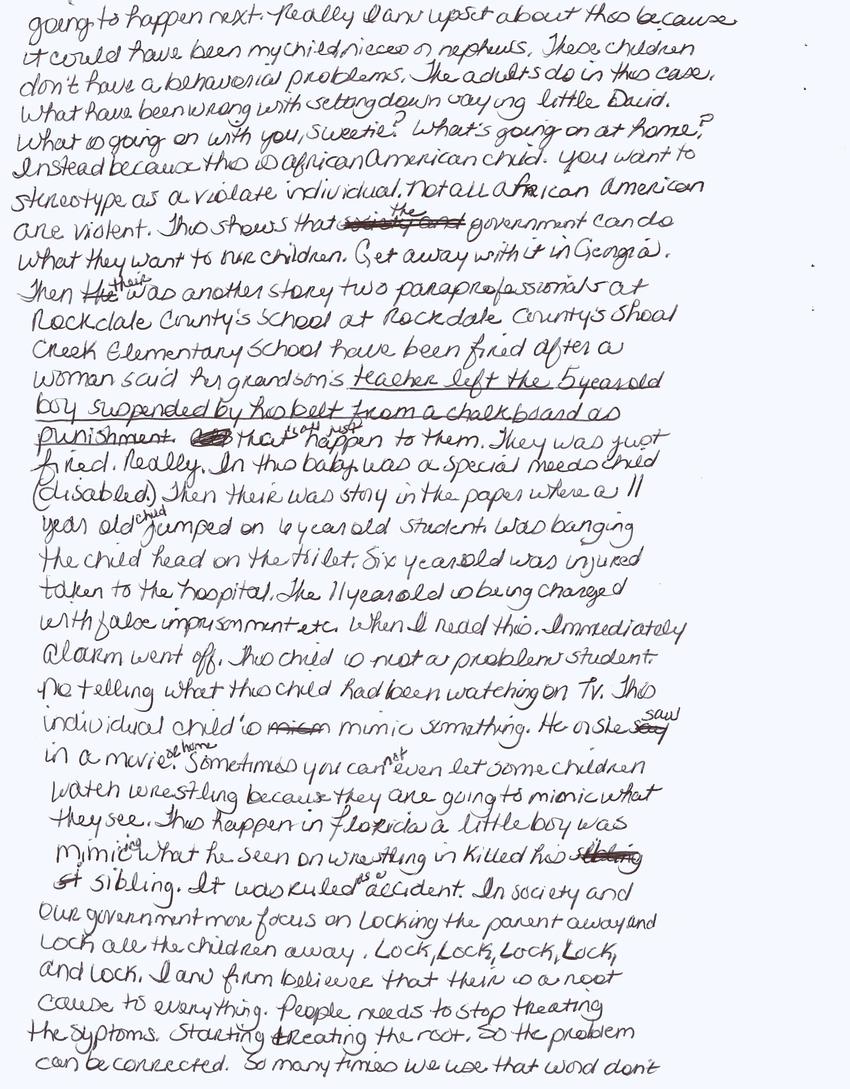 going to happen next. Really I am upset about this because
it could have been my child, nieces or nephews. These children
don't have a behavorial problems. The adults do in this case.
What have been wrong with setting down saying little David.
What is going on with you, sweetie? What's going on at home?
Instead because this is african American child. You want to
stereotype as a violate individual. Not all African American
are violent. This shows that society and the government can do
what they want to our children. Get away with it in Georgia.
Then the their was another story two paraprofessionals at
Rockdale County's School at Rockdale County's Shoal
Creek Elementary School have been fired after a
woman said her grandson's teacher left the 5 year old
boy suspended by his belt from a chalkboard as
punishment. that's all just happen to them. They was just
fired. Really. In this baby was a special needs child
(disabled.) Then their was story in the paper where a 11
year old child jumped on 6 year old student. Was banging
the child head on the toilet. Six year old was injured
taken to the hospital. The 11 year old is being charged
with false imprisonment etc. When I read this. Immediately
Alarm went off. This child is not a problem student.
No telling what this child had been watching on Tv. This
individual child is micm mimic something. He or she say saw
in a movie or home. Sometimes you can not even let some children
watch wrestling because they are going to mimic what
they see. This happen in Florida a little boy was
mimicing what he seen on wrestling in killed his sibling
st sibling. It was ruled as a accident. In society and
our government more focus on Locking the parent away and
lock all the children away. Lock, Lock, Lock, Lock,
and lock. I am firm believer that their is a root
cause to everything. People needs to stop treating
the syptoms. Starting treating the root. So the problem
can be corrected. So many times we use that word don't